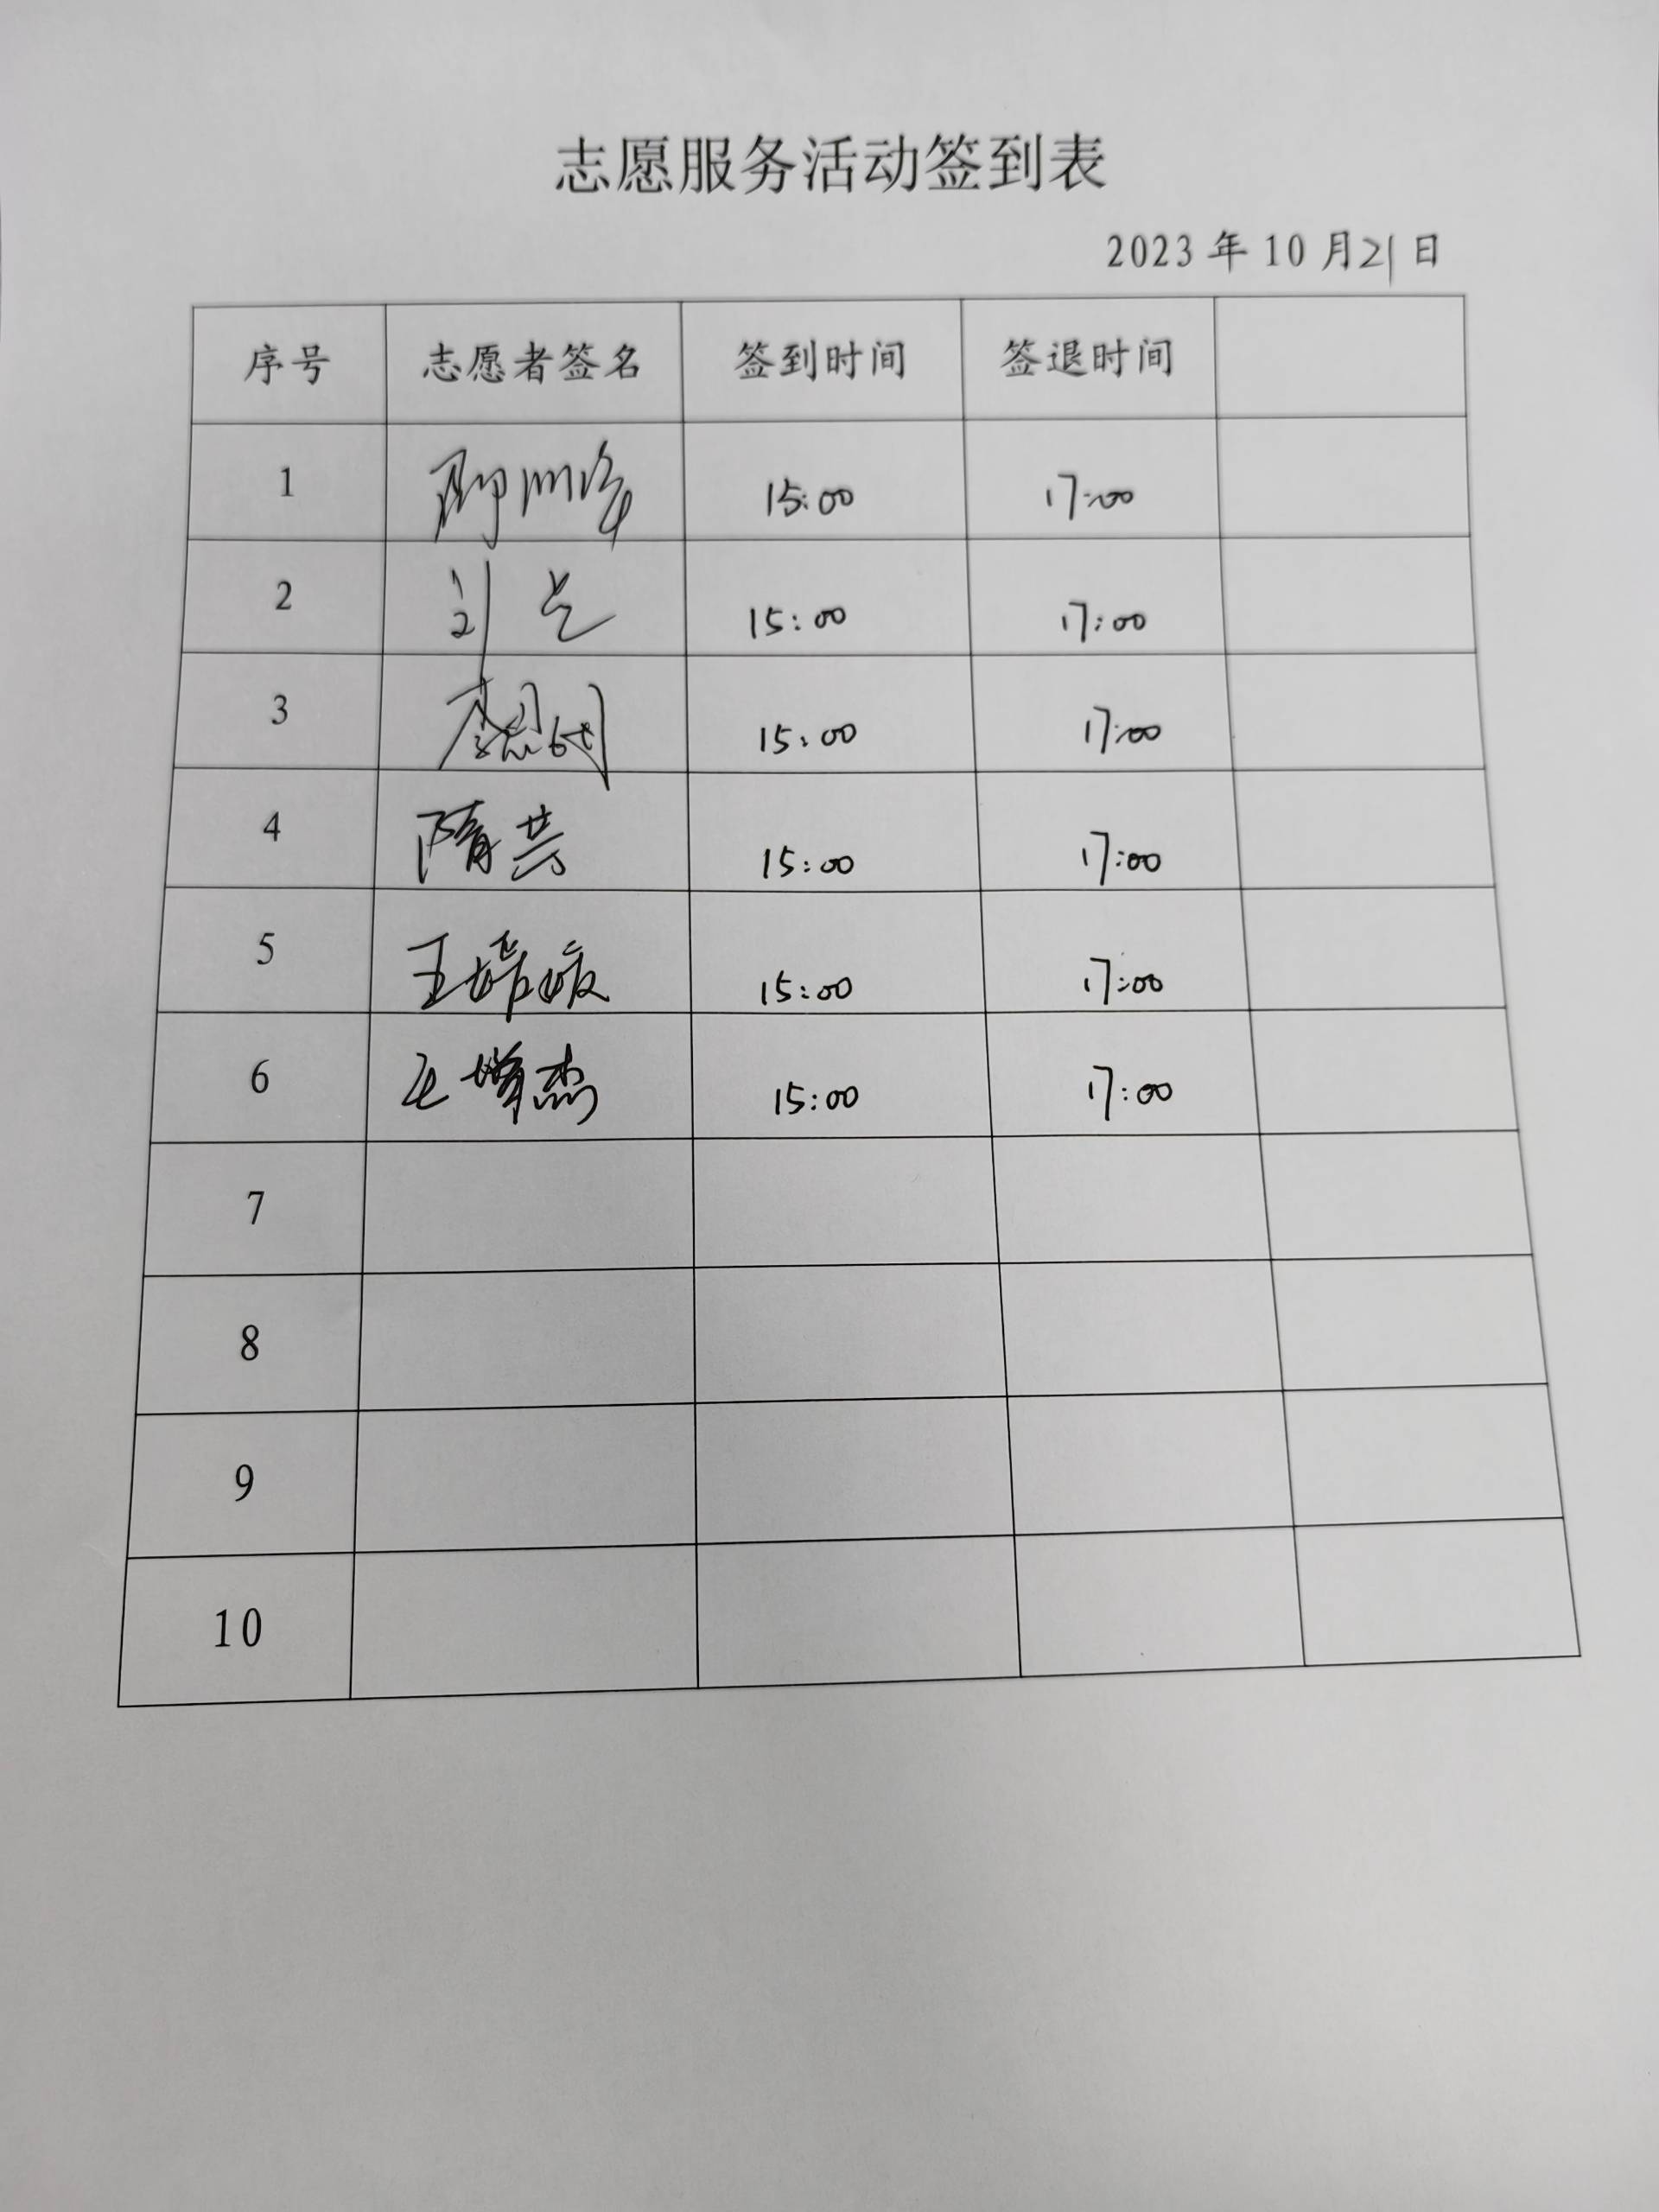 志愿服务活动签到表
2023年10月21日
序号 志愿者签名 签到时间 签退时间
1 15:00 17:00
2 15:00 17:00
3 15:00 17:00
4 隋芸 15:00 17:00
5 15:00 17:00
6 王增杰 15:00 17:00
7
8
9
10